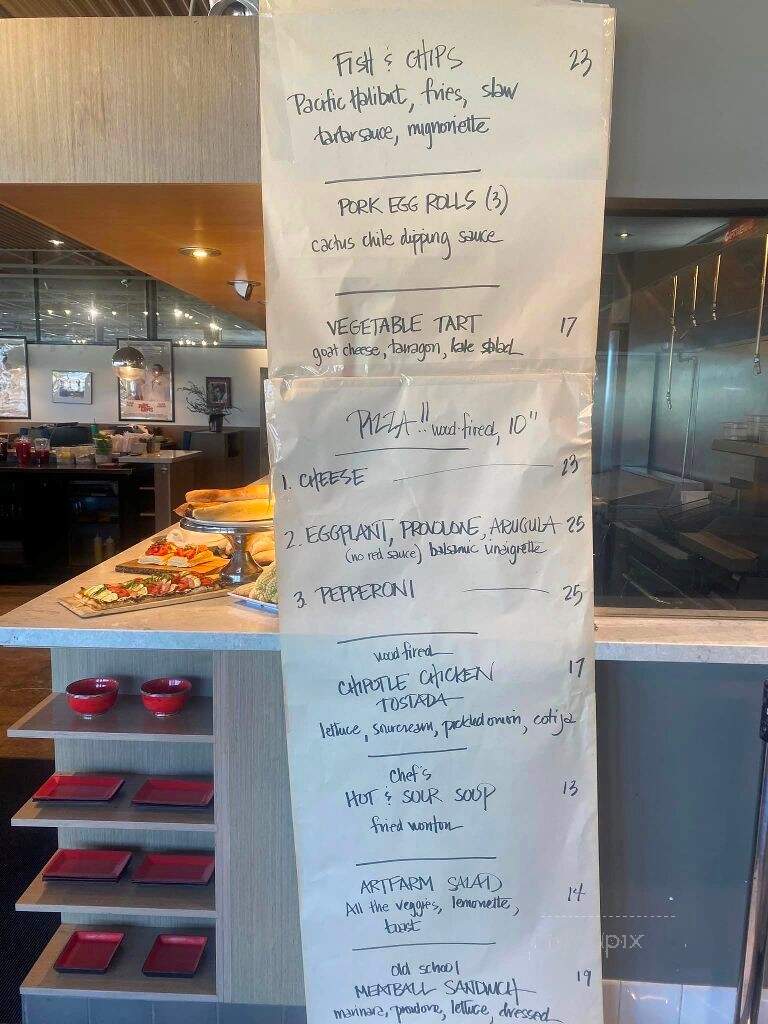 FISH & CHIPS 23
Pacific Halibut, fries, slaw
tartar sauce, mignonette
PORK EGG ROLLS (3)
cactus chile dipping sauce
VEGETABLE TART 17
goat cheese, tarragon, kale salad
PIZZA!! wood-fired, 10"
1. CHEESE 23
2. EGGPLANT, PROVOLONE, ARUGULA 25
(no red sauce) balsamic vinaigrette
3. PEPPERONI 25
wood fired
CHIPOTLE CHICKEN 17
TOSTADA
lettuce, sourcream, pickled onion, cotija
Chef's
HOT & SOUR SOUP 13
fried wonton
ARTFARM SALAD 14
All the veggies, lemonette,
toast
old school
MEATBALL SANDWICH 19
marinara, provolone, lettuce, dressed